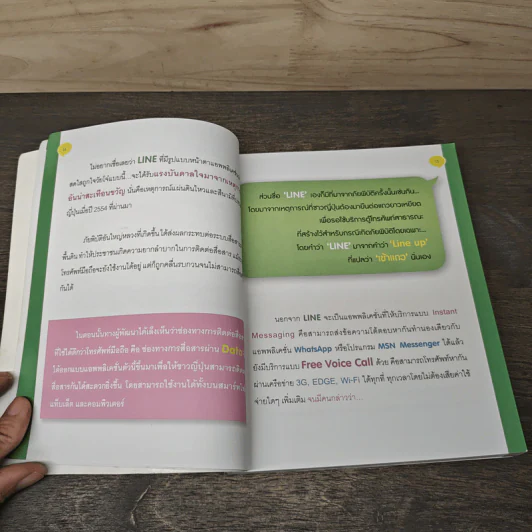 ไม่อยากเชื่อเลยว่า LINE ที่มีรูปแบบหน้าตาแอพพลิเคชั่น
สดใสถูกใจวัยโจ๋แบบนี้...จะได้รับแรงบันดาลใจมาจากเหตุ
อันน่าสะเทือนขวัญ นั่นคือเหตุการณ์แผ่นดินไหวและสึนามิ
ญี่ปุ่นเมื่อปี 2554 ที่ผ่านมา
ภัยพิบัติอันใหญ่หลวงที่เกิดขึ้น ได้ส่งผลกระทบต่อระบบสื่อสาร
พื้นดิน ทำให้ประชาชนเกิดความยากลำบากในการติดต่อสื่อสาร แม้
โทรศัพท์มือถือจะยังใช้งานได้อยู่ แต่ก็ถูกคลื่นรบกวนจนไม่สามารถ
กันได้
ในตอนนั้นทางผู้พัฒนาได้เล็งเห็นว่าช่องทางการติดต่อสื่อ
ที่ใช้ได้ดีกว่าโทรศัพท์มือถือ คือ ช่องทางการสื่อสารผ่าน Data
ได้ออกแบบแอพพลิเคชั่นตัวนี้ขึ้นมาเพื่อให้ชาวญี่ปุ่นสามารถติดต่อ
สื่อสารกันได้สะดวกยิ่งขึ้น โดยสามารถใช้งานได้ทั้งบนสมาร์ทโฟน
แท็บเล็ต และคอมพิวเตอร์
ส่วนชื่อ 'LINE' เองก็มีที่มาจากภัยพิบัติครั้งนั้นเช่นกัน...
โดยมาจากเหตุการณ์ที่ชาวญี่ปุ่นต้องมายืนต่อแถวยาวเหยียด
เพื่อรอใช้บริการตู้โทรศัพท์สาธารณะ
ที่สร้างไว้สำหรับกรณีเกิดภัยพิบัติโดยเฉพาะ...
โดยคำว่า 'LINE' มาจากคำว่า 'Line up'
ที่แปลว่า 'เข้าแถว' นั่นเอง
นอกจาก LINE จะเป็นแอพพลิเคชั่นที่ให้บริการแบบ Instant
Messaging คือสามารถส่งข้อความโต้ตอบหากันทำนองเดียวกับ
แอพพลิเคชั่น WhatsApp หรือโปรแกรม MSN Messenger ได้แล้ว
ยังมีบริการแบบ Free Voice Call ด้วย คือสามารถโทรศัพท์หากัน
ผ่านเครือข่าย 3G, EDGE, Wi-Fi ได้ทุกที่ ทุกเวลาโดยไม่ต้องเสียค่าใช้
จ่ายใดๆ เพิ่มเติม จนมีคนกล่าวว่า...